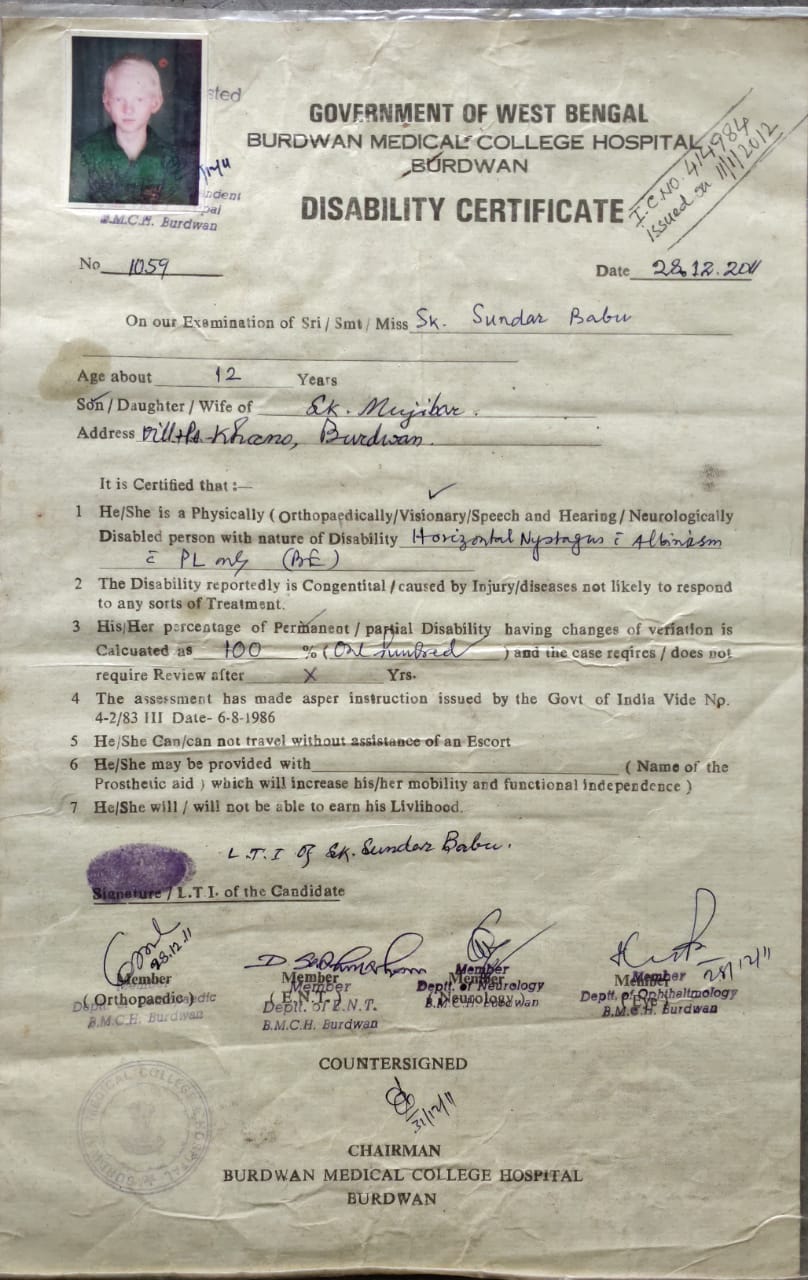 sted
GOVERNMENT OF WEST BENGAL
BURDWAN MEDICAL COLLEGE HOSPITAL
BURDWAN
DISABILITY CERTIFICATE
I.C.NO. 414984
issued on 11/1/2012
B.M.C.H. Burdwan
No 1059
Date 28.12.2011
On our Examination of Sri / Smt / Miss Sk. Sundar Babu
Age about 12 Years
Son / Daughter / Wife of Sk. Mujibar.
Address Vill+Ps- Khano, Burdwan.
It is Certified that :—
1 He/She is a Physically ( Orthopaedically/Visionary/Speech and Hearing / Neurologically
Disabled person with nature of Disability Horizontal Nystagus c̄ Albinism
c̄ PL only (BE)
2 The Disability reportedly is Congentital / caused by Injury/diseases not likely to respond
to any sorts of Treatment.
3 His/Her percentage of Permanent / partial Disability having changes of veriation is
Calcuated as 100 % ( One hundred ) and the case reqires / does not
require Review after X Yrs.
4 The assessment has made asper instruction issued by the Govt of India Vide No.
4-2/83 III Date- 6-8-1986
5 He/She Can/can not travel without assistance of an Escort
6 He/She may be provided with ( Name of the
Prosthetic aid ) which will increase his/her mobility and functional independence )
7 He/She will / will not be able to earn his Livlihood.
L.T.I of Sk. Sundar Babu.
Signature / L.T.I. of the Candidate
28.12.11
28/12/11
Member Member Member Member
( Orthopaedic ) ( E.N.T. ) ( Neurology ) ( Eye )
Member Member Member
Deptt. of E.N.T. Deptt. of Neurology Deptt. of Ophthaltmology
B.M.C.H. Burdwan B.M.C.H. Burdwan B.M.C.H. Burdwan B.M.C.H. Burdwan
COUNTERSIGNED
31/12/11
CHAIRMAN
BURDWAN MEDICAL COLLEGE HOSPITAL
BURDWAN
MEDICAL COLLEGE HOSPITAL